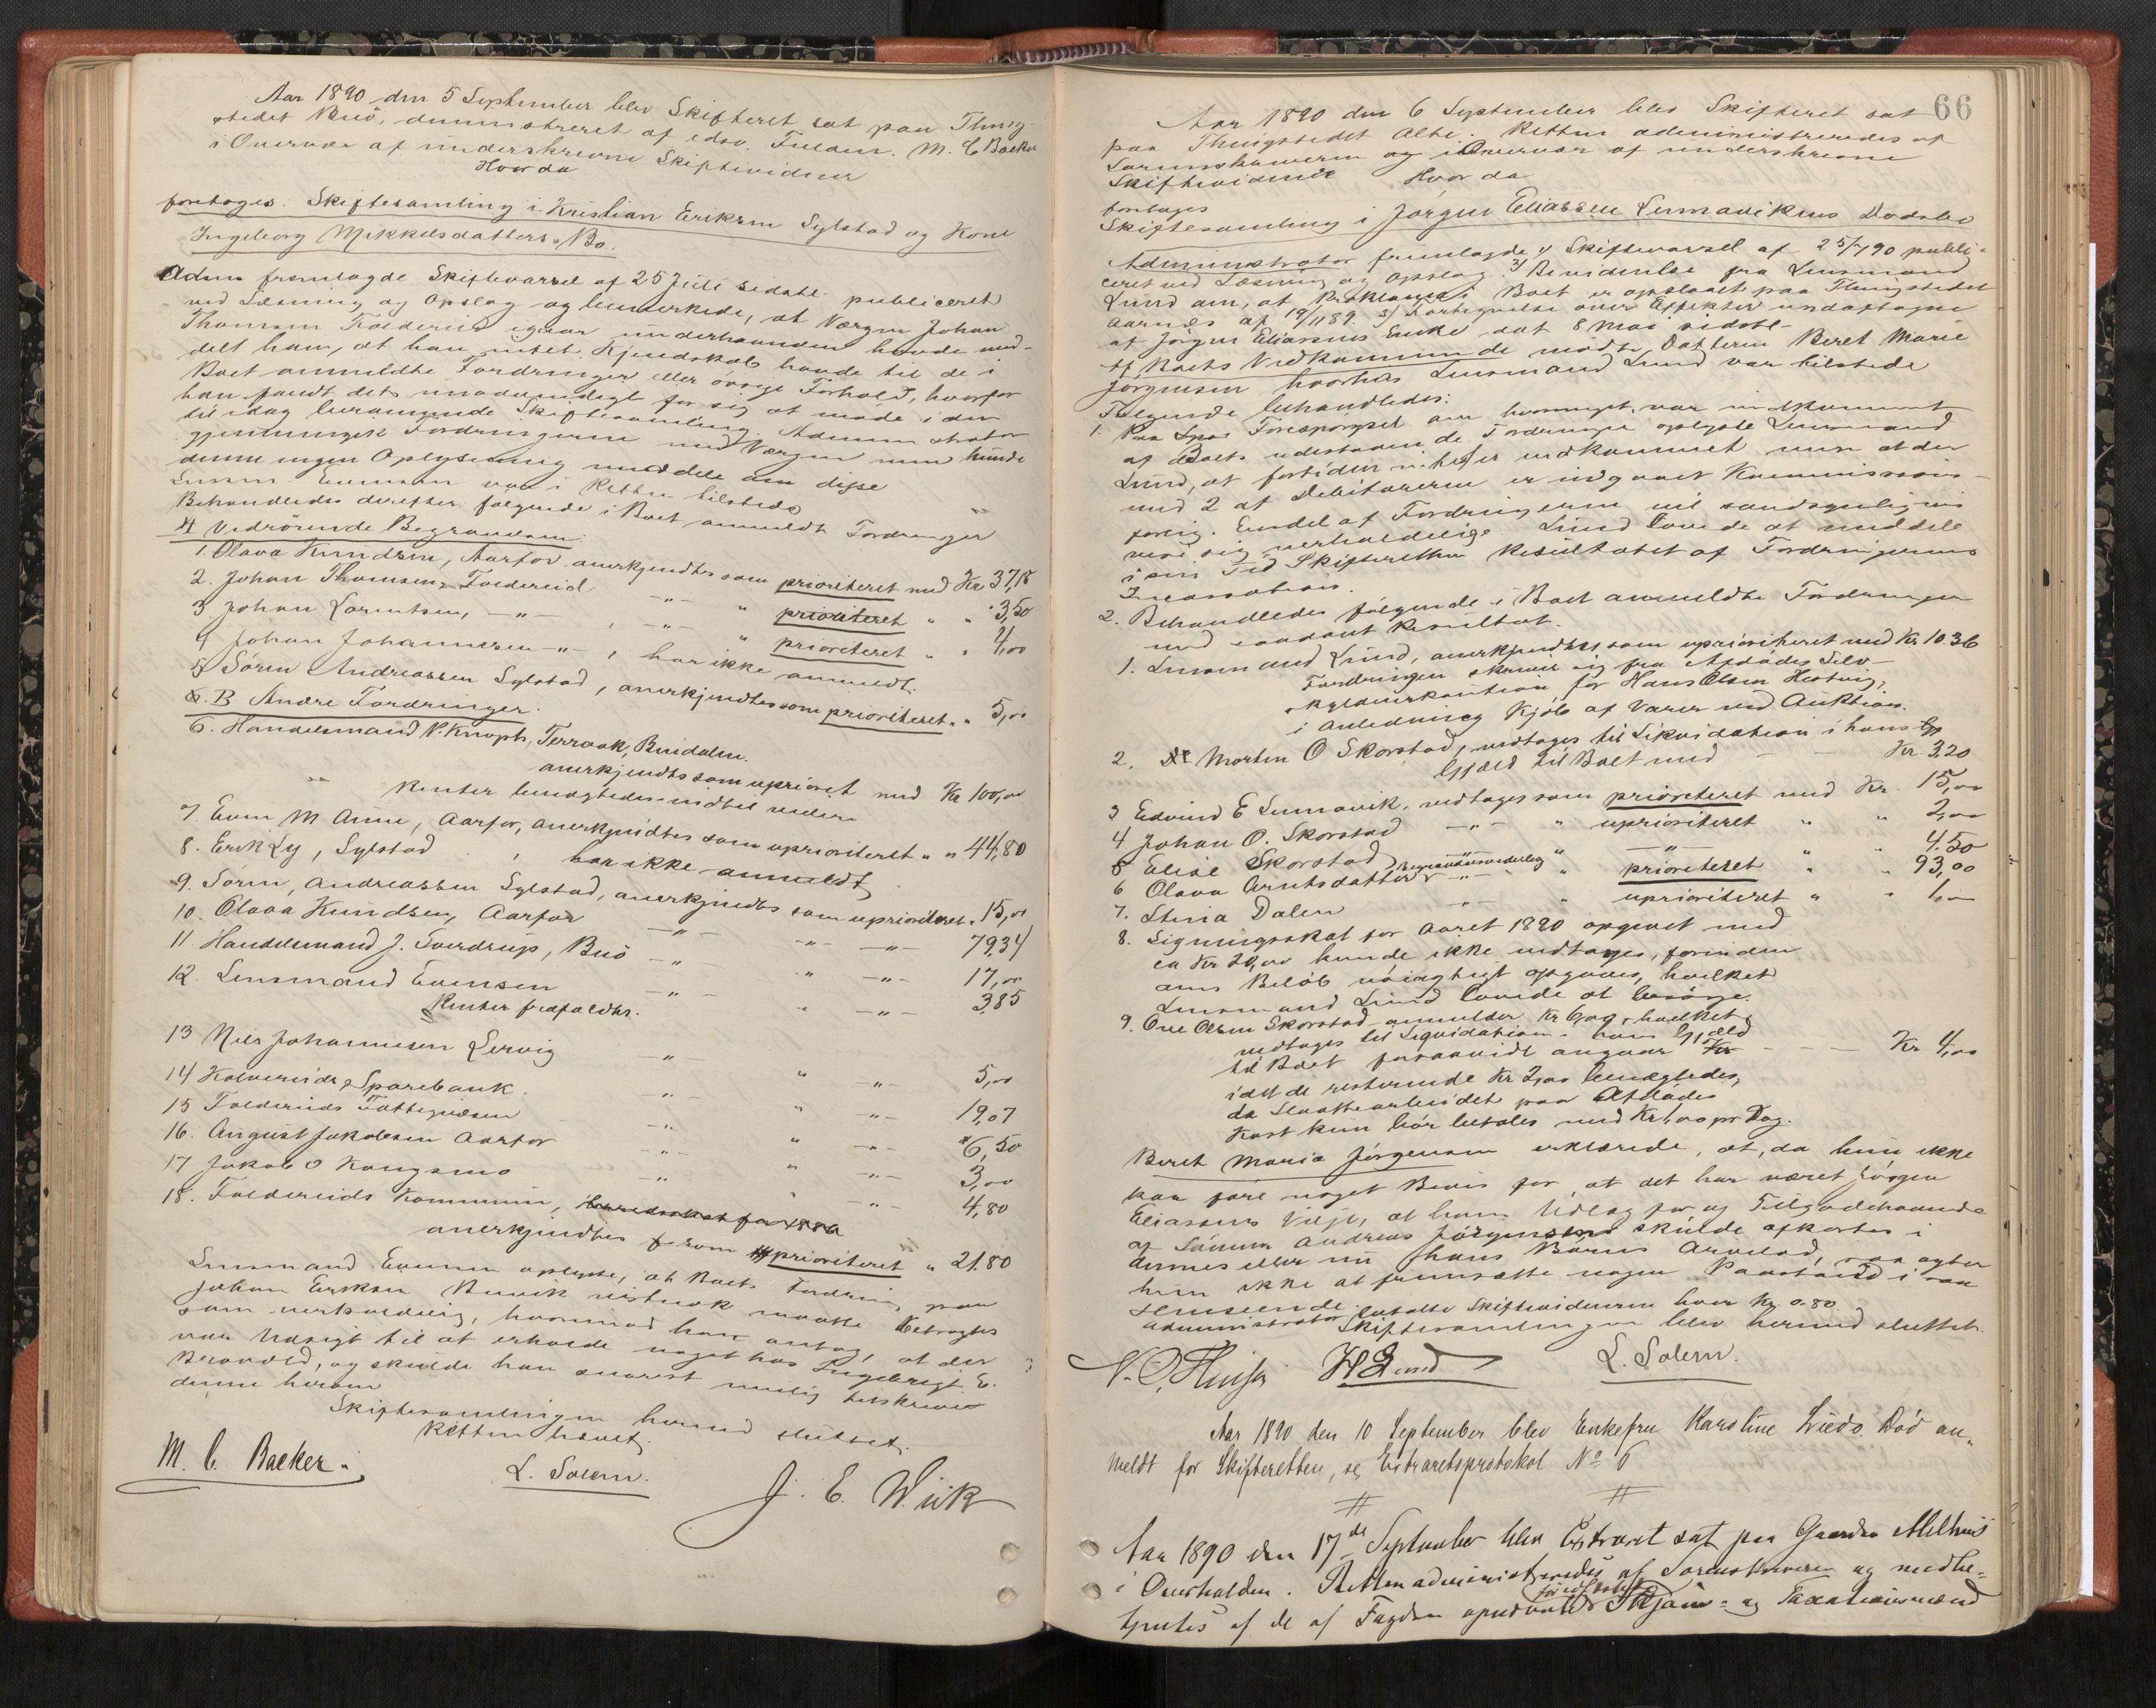 Aar 1890 den 5 September blev Skifteret sat paa Thing-
stedet Buö, administreret af edsv. Fuldm. M. C Backer
i Overvær af underskrevne Skiftevidner
Hvor da
foretoges: Skiftesamling i Kristian Eriksen Sylstad og Kone
Ingeborg Mikkelsdatters Bo.
Adm. fremlagde Skiftevarsel af 25 Juli sidstl. publiceret
ved Læsning og Opslag og bemærkede, at Værgen Johan
Thomsen Foldereid igaar underhaanden havde med-
delt ham, at han intet Kjendskab havde til de i
Boet anmeldte Fordringer eller övrige Forhold, hvorfor
han fandt det unödvendigt for sig at möde i den
til idag berammede Skiftesamling. Administrator
gjennemgik Fordringerne med Værgen men kunde
denne ingen Oplysning meddele om disse
Lensm. Evensen var i Retten tilstede
Behandledes derefter følgende i Boet anmeldte Fordringer
A Vedrörende Begravelsen:
1. Olava Knudsen, Aarfor anerkjendtes som prioriteret med Kr 37,18
2. Johan Thomsen, Foldereid -"- " prioriteret " " 3,50
3 Johan Lorentsen, -"- , -"- " prioriteret " " 4,00
4 Johan Johannesen -"- , har ikke anmeldt.
5 Sören Andreassen Sylstad, anerkjendtes som prioriteret " " 5,00
B Andre Fordringer.
6. Handelsmand N. Knoph, Terraak, Bindalen.
anerkjendtes som upriorit med Kr 100,00
Renter benægtedes indtil videre
7. Even M Aune, Aarfor, anerkjendtes som uprioriteret " " 44,80
8. Erik Ly, Sylstad , har ikke anmeldt
9. Sören Andreassen Sylstad, anerkjendtes som uprioriteret " 15,00
10. Olava Knudsen, Aarfor -"- -"- -"- 79,34
11 Handelsmand J. Sverdrup, Buö -"- " -"- 17,00
12. Lensmand Evensen -"- " -"- 3,85
Renter frafaldtes.
13 Nils Johannesen Lervig -"- " -"- 5,00
14 Kolvereids Sparebank -"- " -"- 19,07
15 Foldereids Fattigvæsen -"- " -"- 6,50
16. August Jakobsen Aarfor -"- " -"- 3,00
17 Jakob O Kongsmo -"- " -"- 4,80
18. Foldereids Kommune,
anerkjendtes som prioriteret " 21.80
Lensmand Evensen oplyste, at Boets Fordring paa
Johan Eriksen vistnok maatte betragtes
som verdilös, hvorimod han antog, at der
var Udsigt til at erholde noget hos Ingebrigt E.
og skulde han snarest mulig tilskrive
denne herom
Skiftesamlingen hermed sluttet.
Retten hævet.
M. C. Backer.
L. Solem.
J. E. Wiik
66
Aar 1890 den 6 September blev Skifteret sat
paa Thingstedet Alte. Retten administreredes af
Sorenskriveren og i Overvær af underskrevne
Skiftevidner Hvor da
foretoges
Skiftesamling i Jörgen Eliassen Lernavikens Dödsbo
Administrator fremlagde 1) Skiftevarsel af 25/7 90 publi-
ceret ved Læsning og Opslag. 2) Bevidnelse fra Lensmand
Lund om, at Proklama i Boet er opslaaet paa Thingstedet
Aarnes af 19/11 89. 3) Fortegnelse over Effekter undaftagne
af Jörgen Eliassens Enke dat 8 Mai sidstl.
Af Boets Vedkommende mödte Datteren Beret Marie
Jörgensen hvorhos Lensmand Lund var tilstede
Fölgende behandledes:
1. Paa Forespörgsel om hvormeget var indkommet
af Boets udestaaende Fordringer oplyste Lensmand
Lund, at fortiden intet er indkommet men at der
med 2 af Debitorerne er indgaaet Kommissions-
forlig. Endel af Fordringerne vil sandsynligvis
vise sig værdilöse. Lund lovede at meddele
i sin Tid Skifteretten Resultatet af Fordringernes
Incassation.
2. Behandledes fölgende i Boet anmeldte Fordringer
med saadant Resultat.
1. Lensmand Lund, anerkjendtes som uprioriteret med Kr 10.36
Fordringen skriver sig fra Afdödes Selv-
skyldnerkaution for Hans Olsen
i Anledning Kjöb af Varer ved Auktion.
2. Morten O Skorstad, vedtoges til Likvidation i hans
Gjæld til Boet med - - Kr. 3,20
3 Edvind E Lernavik, vedtoges som prioriteret med Kr. 15,00
4 Johan O. Skorstad -"- " uprioriteret " " 2,00
5 Elise Skorstad -"- " -"- " " 4.50
6 Olava Arntsdatter -"- " prioriteret " " 93,00
7. Stina Dalen -"- " uprioriteret " " 1,00
8. Ligningsskat for Aaret 1890 opgivet med
ca Kr 20,00 kunde ikke vedtages, forinden
dens Belöb nöiagtigt opgaves, hvilket
Lensmand Lund lovede at besörge.
9. Ove Olsen Skorstad anmelder Kr 6,00, hvilket
vedtoges til Liquidation i hans Gjæld
til Boet forsaavidt angaar Kr - - - Kr 4,00
idet de resterende Kr 2,00 benægtedes,
da Slaattearbeidet paa Afdödes
Kost kun bör betales med Kr 1,00 pr Dag.
Beret Maria Jörgensen erklærede, at, da hun ikke
kan före noget Bevis for, at det har været Jörgen
Eliassens Vilje, at hans Udlæg for og Tilgodehavende
af Sönnen Andreas Jörgensen skulde afkortes i
dennes eller nu hans Börns Arvelod, saa agter
hun ikke at fremsætte nogen Paastand i saa
Henseende.
Administrator betalte Skiftevidnerne hver Kr. 0.80
Skiftesamlingen blev hermed sluttet.
H Lund
L. Solem.
Aar 1890 den 10 September blev Enkefru Karoline Lieds. Död an-
meldt for Skifteretten, se Extraretsprotokol No 6
Aar 1890 den 17de September blev Extraret sat paa Gaarden Melhus
i Overhalden. Retten administreredes af Sorenskriveren og medbe-
tjentes af de af Fogden opnævnte Skjöns- og Taxationsmænd